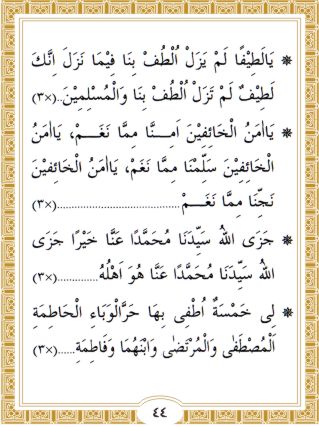 ❋ يَالَطِيْفًا لَمْ يَزَلْ اُلْطُفْ بِنَا فِيْمَا نَزَلَ اِنَّكَ
لَطِيْفٌ لَمْ تَزَلْ اُلْطُفْ بِنَا وَالْمُسْلِمِيْنَ..(×٣)
❋ يَااَمَنُ الْخَائِفِيْنَ اٰمِـنَّا مِمَّا نَغَـــمْ، يَااَمَنُ
الْخَائِفِيْنَ سَلِّمْنَا مِمَّا نَغَمْ، يَااَمَنُ الْخَائِفِيْنَ
نَجِّنَا مِمَّا نَغَـــمْ................................(×٣)
❋ جَزَى اللهُ سَيِّدَنَا مُحَمَّدًا عَنَّا خَيْرًا جَزَى
اللهُ سَيِّدَنَا مُحَمَّدًا عَنَّا هُوَ اَهْلُهُ............(×٣)
❋ لِى خَمْسَةٌ اُطْفِى بِهَا حَرَّالْوَبَاءِ الْحَاطِمَةِ
اَلْمُصْطَفٰى وَالْمُرْتَضٰى وَابْنَهُمَا وَفَاطِمَةِ......(×٣)
٤٤